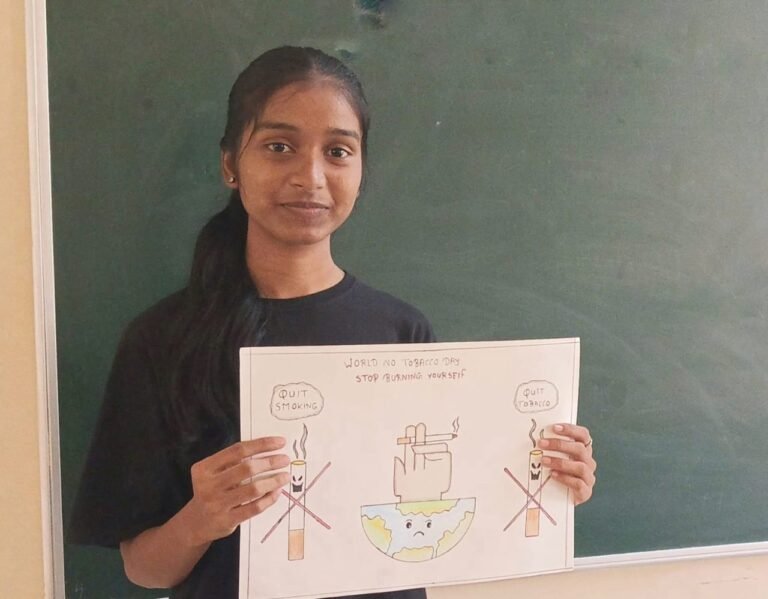 WORLD NO TOBACCO DAY
STOP BURNING YOURSELF
QUIT
SMOKING
QUIT
TOBACCO